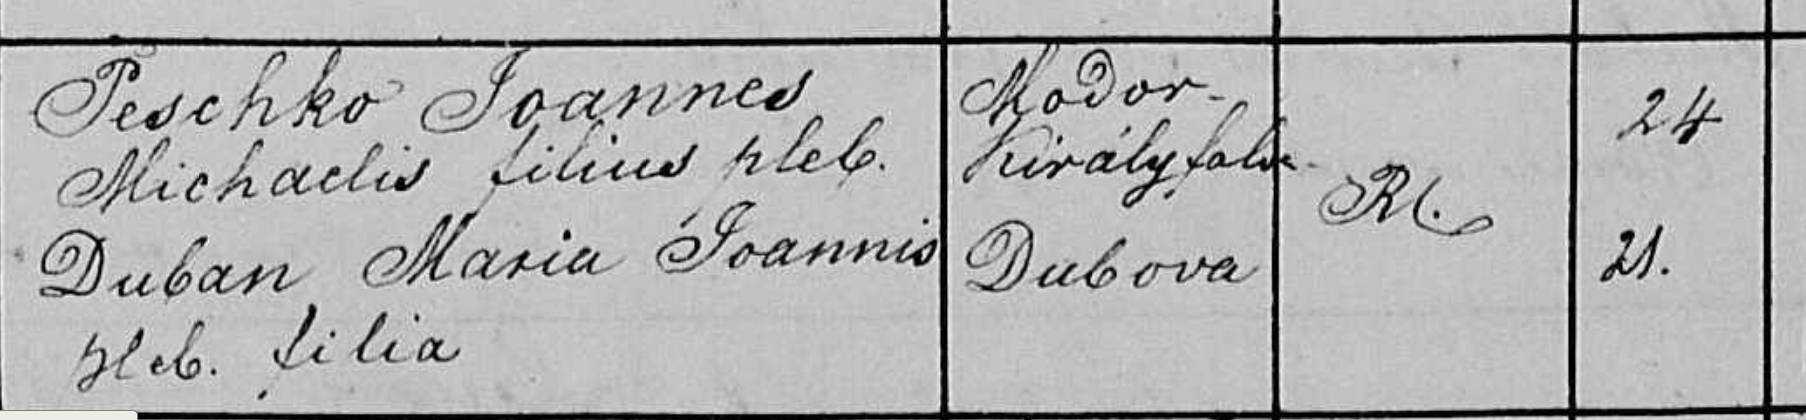 Peschko Ioannes
Michaelis filius pleb.
Duban Maria Ioannis
pleb. filia
Modor-
Királyfalva
Dubova
RC.
24
21.